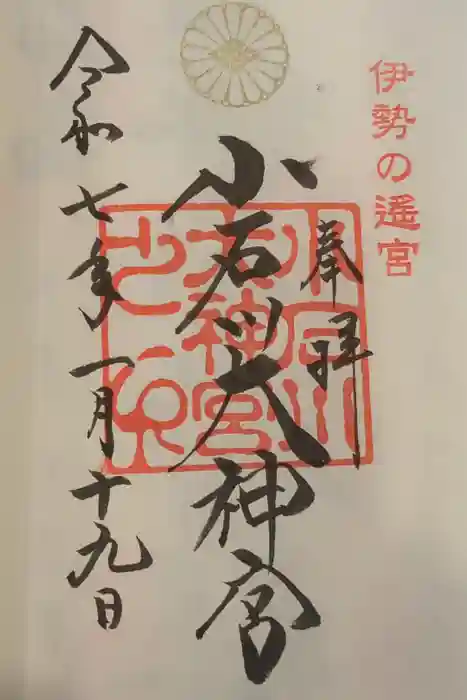 伊勢の遥宮
奉拝
小石川大神宮
令和七年一月十九日
小石川
大神宮
之印